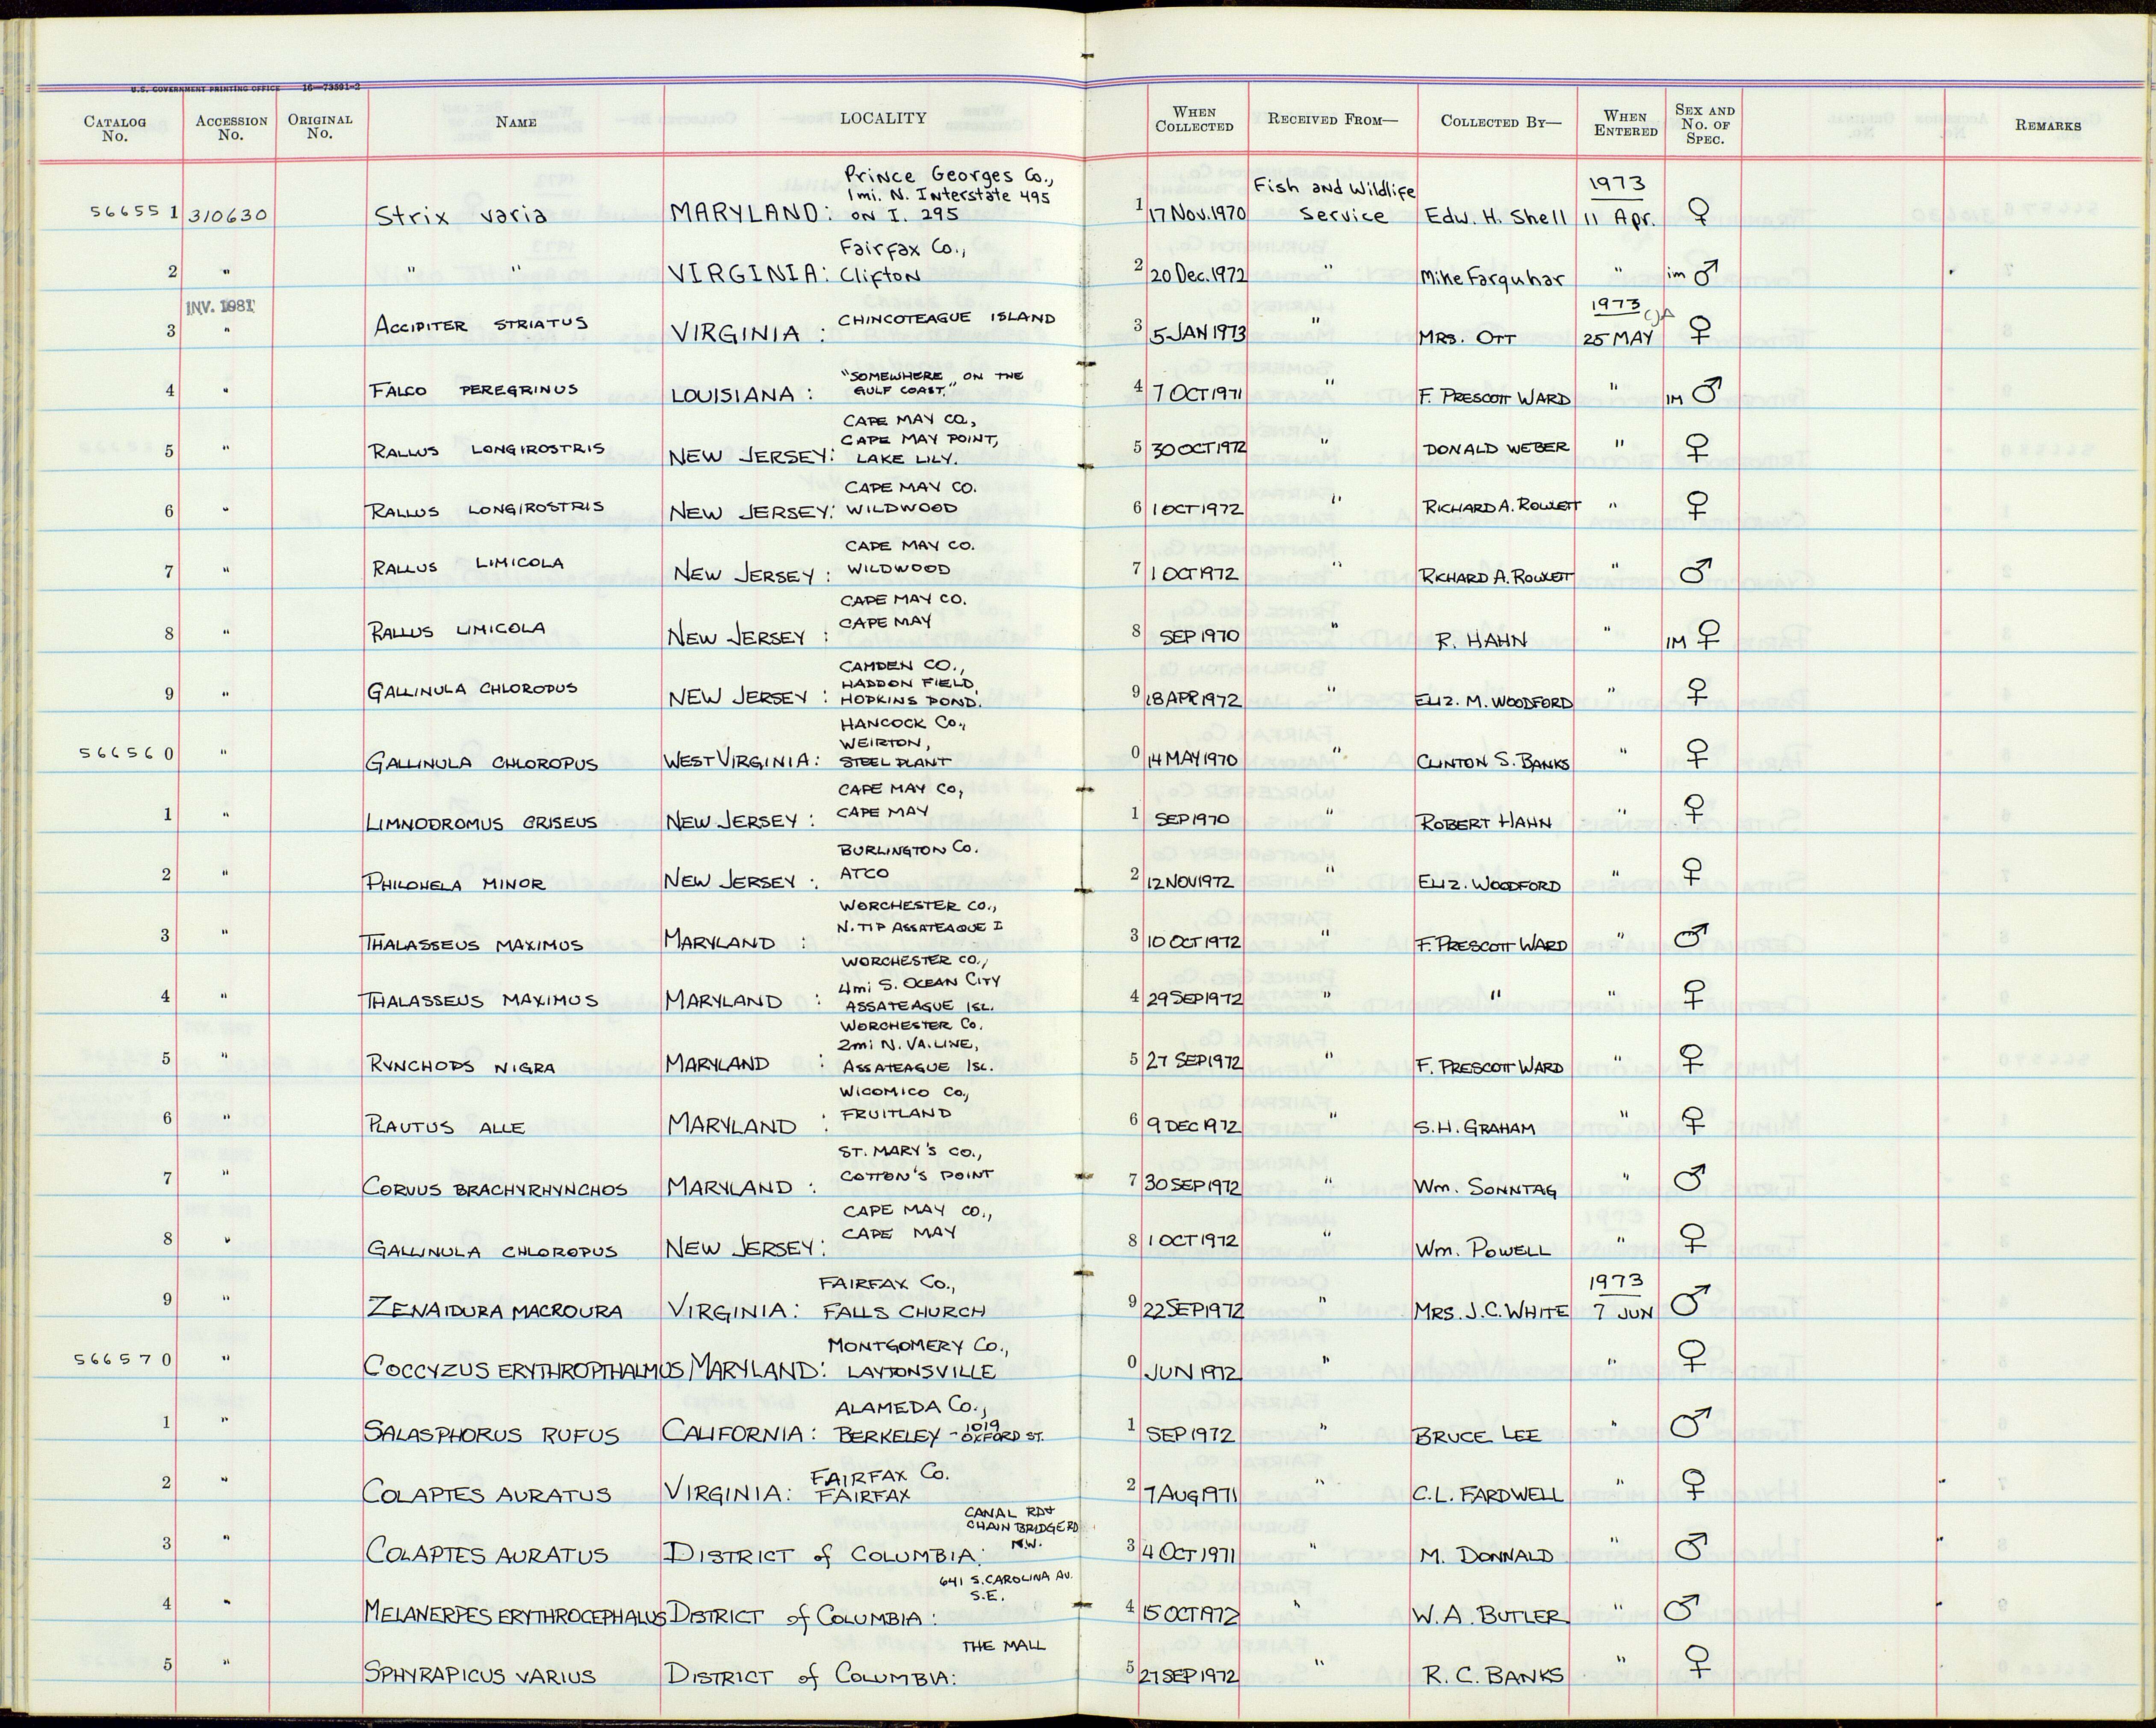 U.S. GOVERNMENT PRINTING OFFICE 16—73591-2
CATALOG No. ACCESSION No. ORIGINAL No. NAME LOCALITY WHEN COLLECTED RECEIVED FROM— COLLECTED BY— WHEN ENTERED SEX AND No. OF SPEC. REMARKS
Prince Georges Co.,
1 mi. N. Interstate 495
Fish and Wildlife 1973
566551 310630 Strix varia MARYLAND: on I. 295 1 17 Nov. 1970 Service Edw. H. Shell 11 Apr. ♀
Fairfax Co.,
2 " " " VIRGINIA: Clifton 2 20 Dec. 1972 " Mike Farquhar " im ♂
INV. 1981 1973
3 " ACCIPITER STRIATUS VIRGINIA : CHINCOTEAGUE ISLAND 3 5 JAN 1973 " MRS. OTT 25 MAY ♀
"SOMEWHERE ON THE
4 " FALCO PEREGRINUS LOUISIANA : GULF COAST." 4 7 OCT 1971 " F. PRESCOTT WARD " IM ♂
CAPE MAY CO.,
CAPE MAY POINT,
5 " RALLUS LONGIROSTRIS NEW JERSEY: LAKE LILY. 5 30 OCT 1972 " DONALD WEBER " ♀
CAPE MAY CO.
6 " RALLUS LONGIROSTRIS NEW JERSEY: WILDWOOD 6 1 OCT 1972 " RICHARD A. ROWLETT " ♀
CAPE MAY CO.
7 " RALLUS LIMICOLA NEW JERSEY : WILDWOOD 7 1 OCT 1972 " RICHARD A. ROWLETT " ♂
CAPE MAY CO.
8 " RALLUS LIMICOLA NEW JERSEY : CAPE MAY 8 SEP 1970 " R. HAHN " IM ♀
CAMDEN CO.,
HADDON FIELD,
9 " GALLINULA CHLOROPUS NEW JERSEY : HOPKINS POND. 9 18 APR 1972 " ELIZ. M. WOODFORD " ♀
HANCOCK CO.,
WEIRTON,
566560 " GALLINULA CHLOROPUS WEST VIRGINIA: STEEL PLANT 0 14 MAY 1970 " CLINTON S. BANKS " ♀
CAPE MAY CO,
1 " LIMNODROMUS GRISEUS NEW JERSEY : CAPE MAY 1 SEP 1970 " ROBERT HAHN " ♀
BURLINGTON CO.
2 " PHILOHELA MINOR NEW JERSEY : ATCO 2 12 NOV 1972 " ELIZ. WOODFORD " ♀
WORCHESTER CO.,
3 " THALASSEUS MAXIMUS MARYLAND : N. TIP ASSATEAGUE I 3 10 OCT 1972 " F. PRESCOTT WARD " ♂
WORCHESTER CO.,
4mi S. OCEAN CITY
4 " THALASSEUS MAXIMUS MARYLAND : ASSATEAGUE ISL. 4 29 SEP 1972 " " " ♀
WORCHESTER CO.
2mi N. VA. LINE,
5 " RYNCHOPS NIGRA MARYLAND : ASSATEAGUE ISL. 5 27 SEP 1972 " F. PRESCOTT WARD " ♀
WICOMICO CO.,
6 " PLAUTUS ALLE MARYLAND : FRUITLAND 6 9 DEC 1972 " S.H. GRAHAM " ♀
ST. MARY'S CO.,
7 " CORVUS BRACHYRHYNCHOS MARYLAND : COTTON'S POINT 7 30 SEP 1972 " WM. SONNTAG " ♂
CAPE MAY CO.,
8 " GALLINULA CHLOROPUS NEW JERSEY: CAPE MAY 8 1 OCT 1972 " WM. POWELL " ♀
FAIRFAX CO., 1973
9 " ZENAIDURA MACROURA VIRGINIA: FALLS CHURCH 9 22 SEP 1972 " MRS. J.C. WHITE 7 JUN ♂
MONTGOMERY CO.,
566570 " COCCYZUS ERYTHROPTHALMUS MARYLAND: LAYTONSVILLE 0 JUN 1972 " " ♀
ALAMEDA CO.,
1 " SALASPHORUS RUFUS CALIFORNIA: BERKELEY - 1019 OXFORD ST. 1 SEP 1972 " BRUCE LEE " ♂
FAIRFAX CO.
2 " COLAPTES AURATUS VIRGINIA: FAIRFAX 2 7 AUG 1971 " C.L. FARDWELL " ♀
CANAL RD +
CHAIN BRIDGE RD
N.W.
3 " COLAPTES AURATUS DISTRICT of COLUMBIA: 3 4 OCT 1971 " M. DONNALD " ♂
641 S. CAROLINA AV.
S.E.
4 " MELANERPES ERYTHROCEPHALUS DISTRICT of COLUMBIA : 4 15 OCT 1972 " W.A. BUTLER " ♂
THE MALL
5 " SPHYRAPICUS VARIUS DISTRICT of COLUMBIA: 5 27 SEP 1972 " R.C. BANKS " ♀